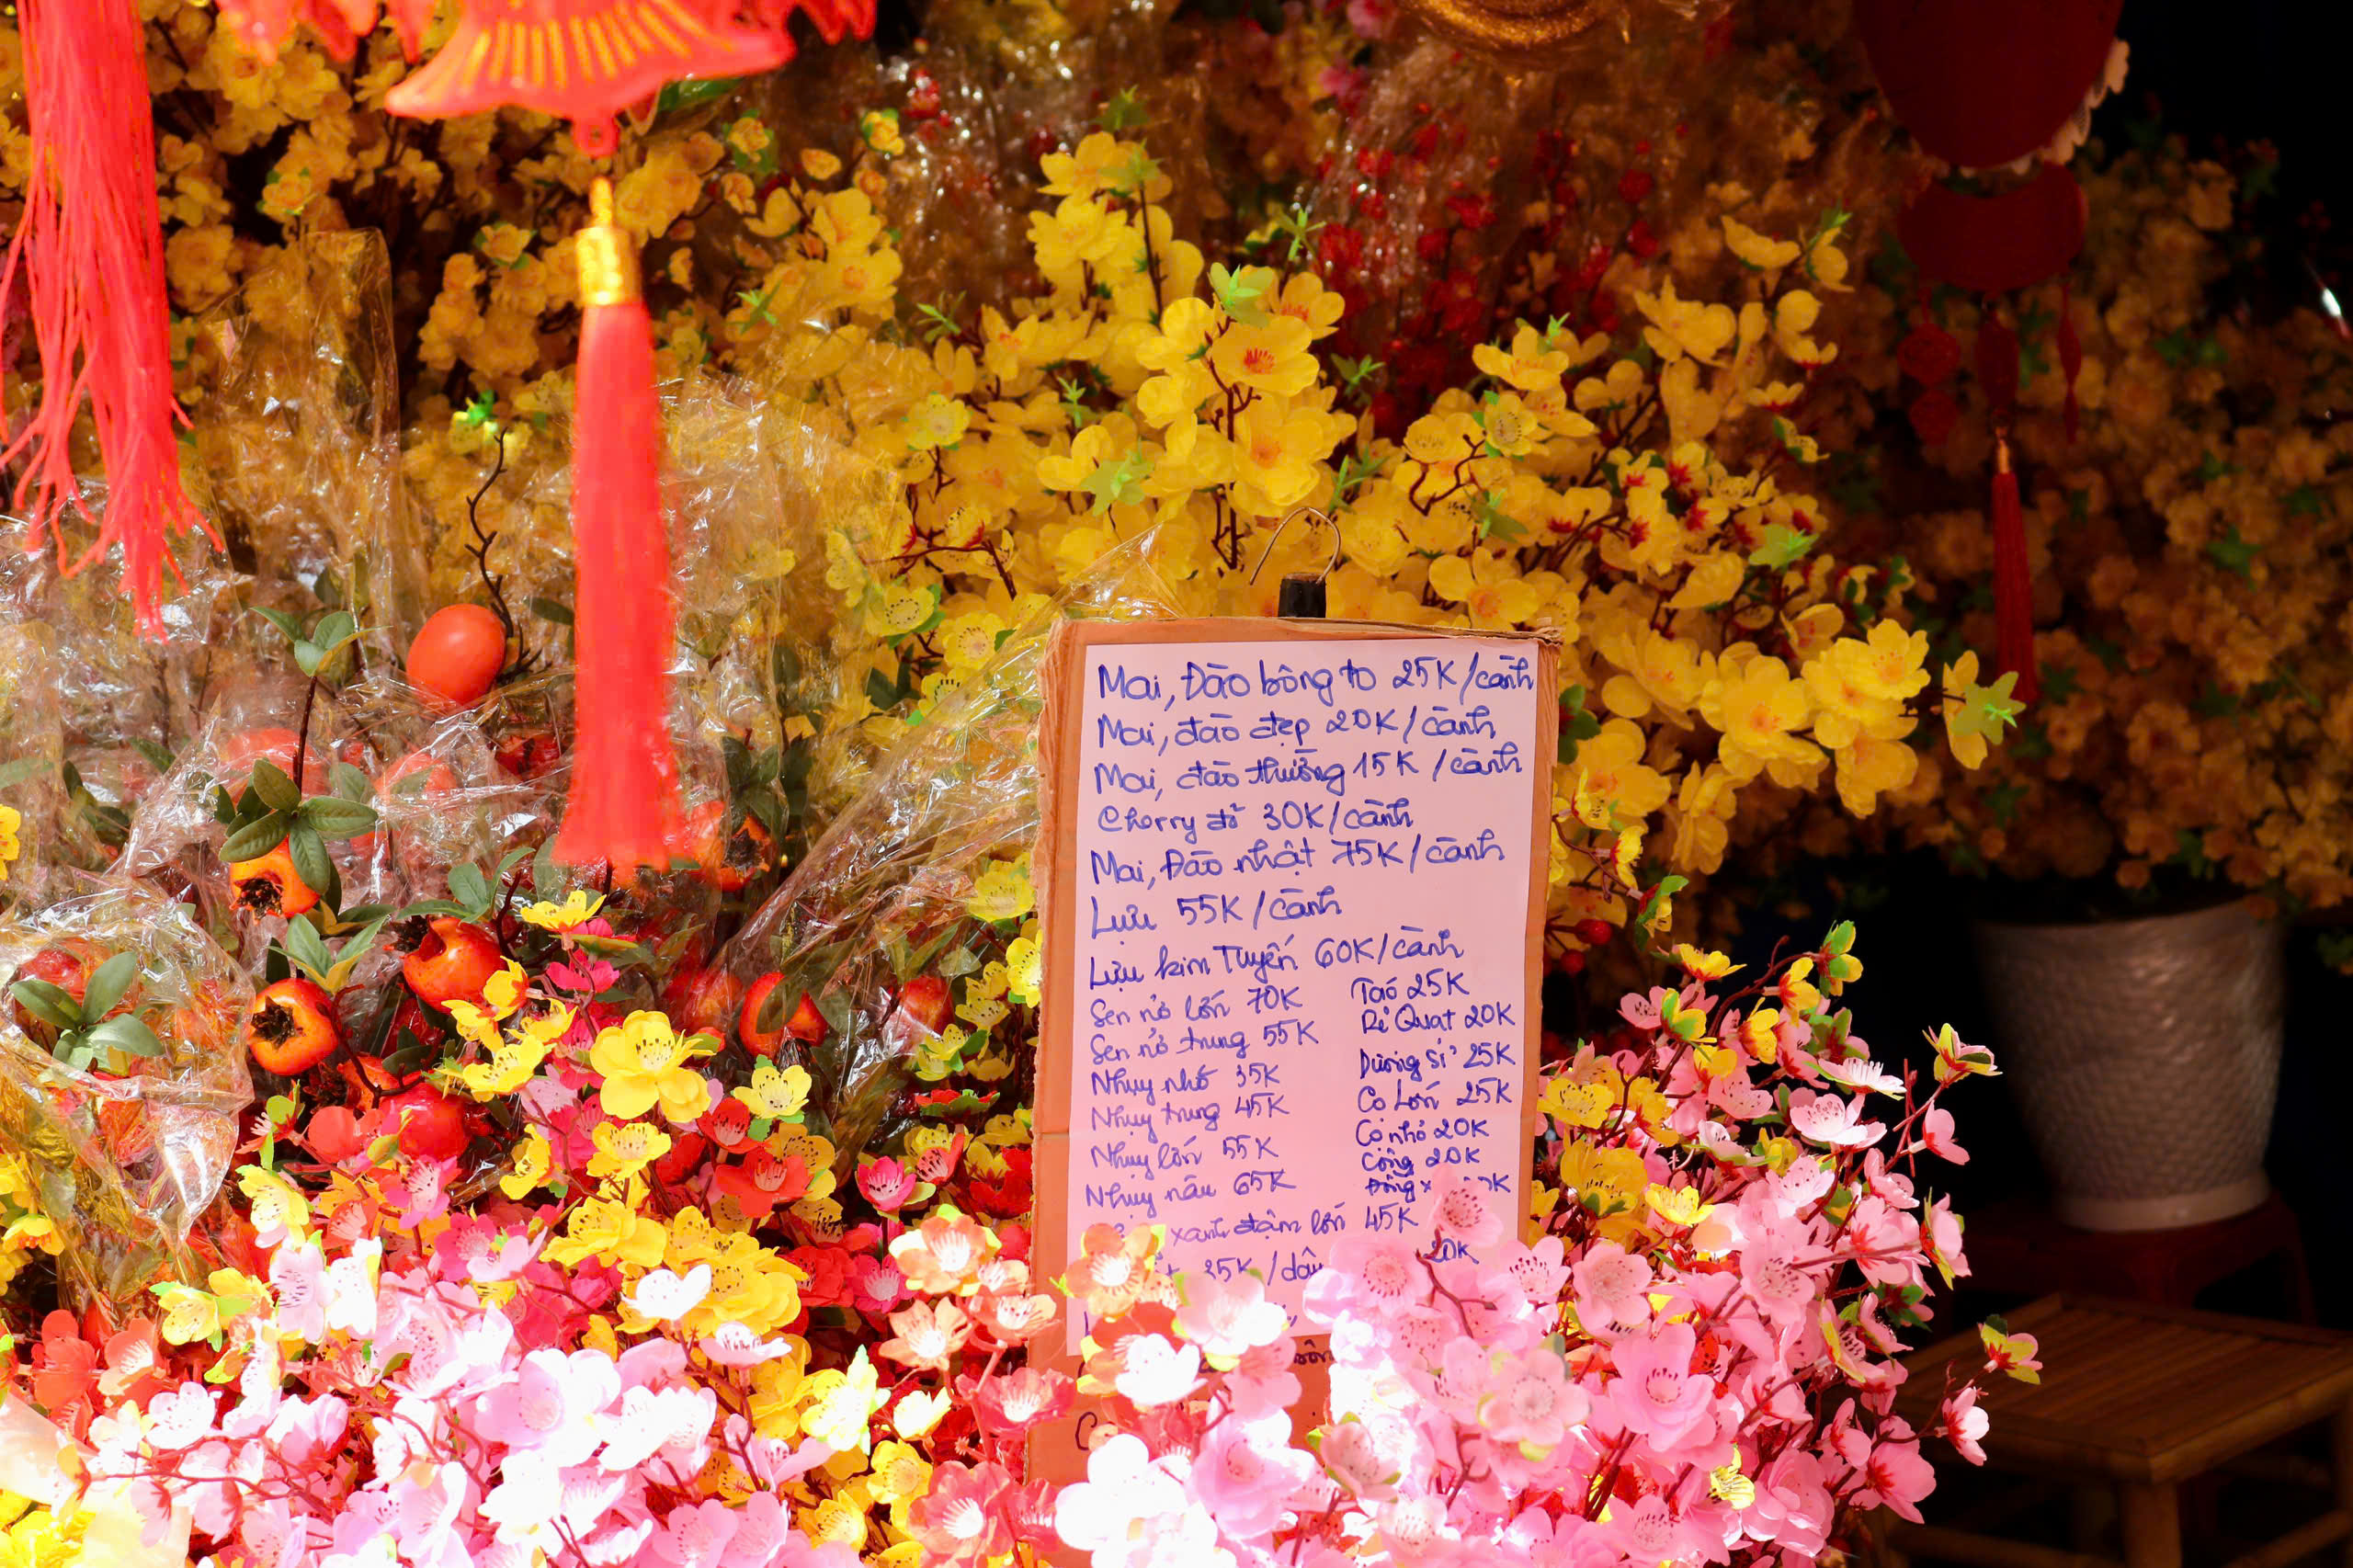 Mai, Đào bông to 25K/cành
Mai, đào đẹp 20K/cành
Mai, đào thường 15K/cành
Cherry đỏ 30K/cành
Mai, Đào nhật 75K/cành
Lựu 55K/cành
Lựu kim Tuyến 60K/cành
Sen nở lớn 70K
Sen nở trung 55K
Nhụy nhỏ 35K
Nhụy trung 45K
Nhụy lớn 55K
Nhụy nâu 65K
xanh đậm lớn 45K
/dây
Táo 25K
Rẻ Quạt 20K
Dương sỉ 25K
Cọ Lớn 25K
Cọ nhỏ 20K
20K
20K